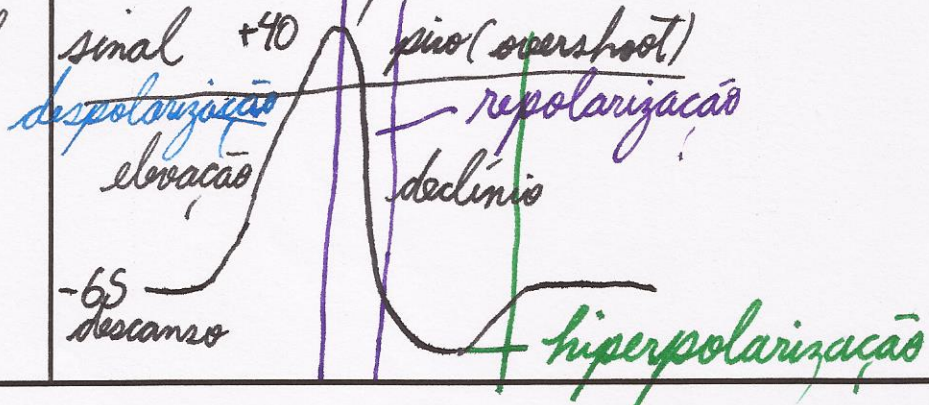 sinal +40 pico (overshoot)
despolarização repolarização
elevação declínio
-65
descanso
hiperpolarização